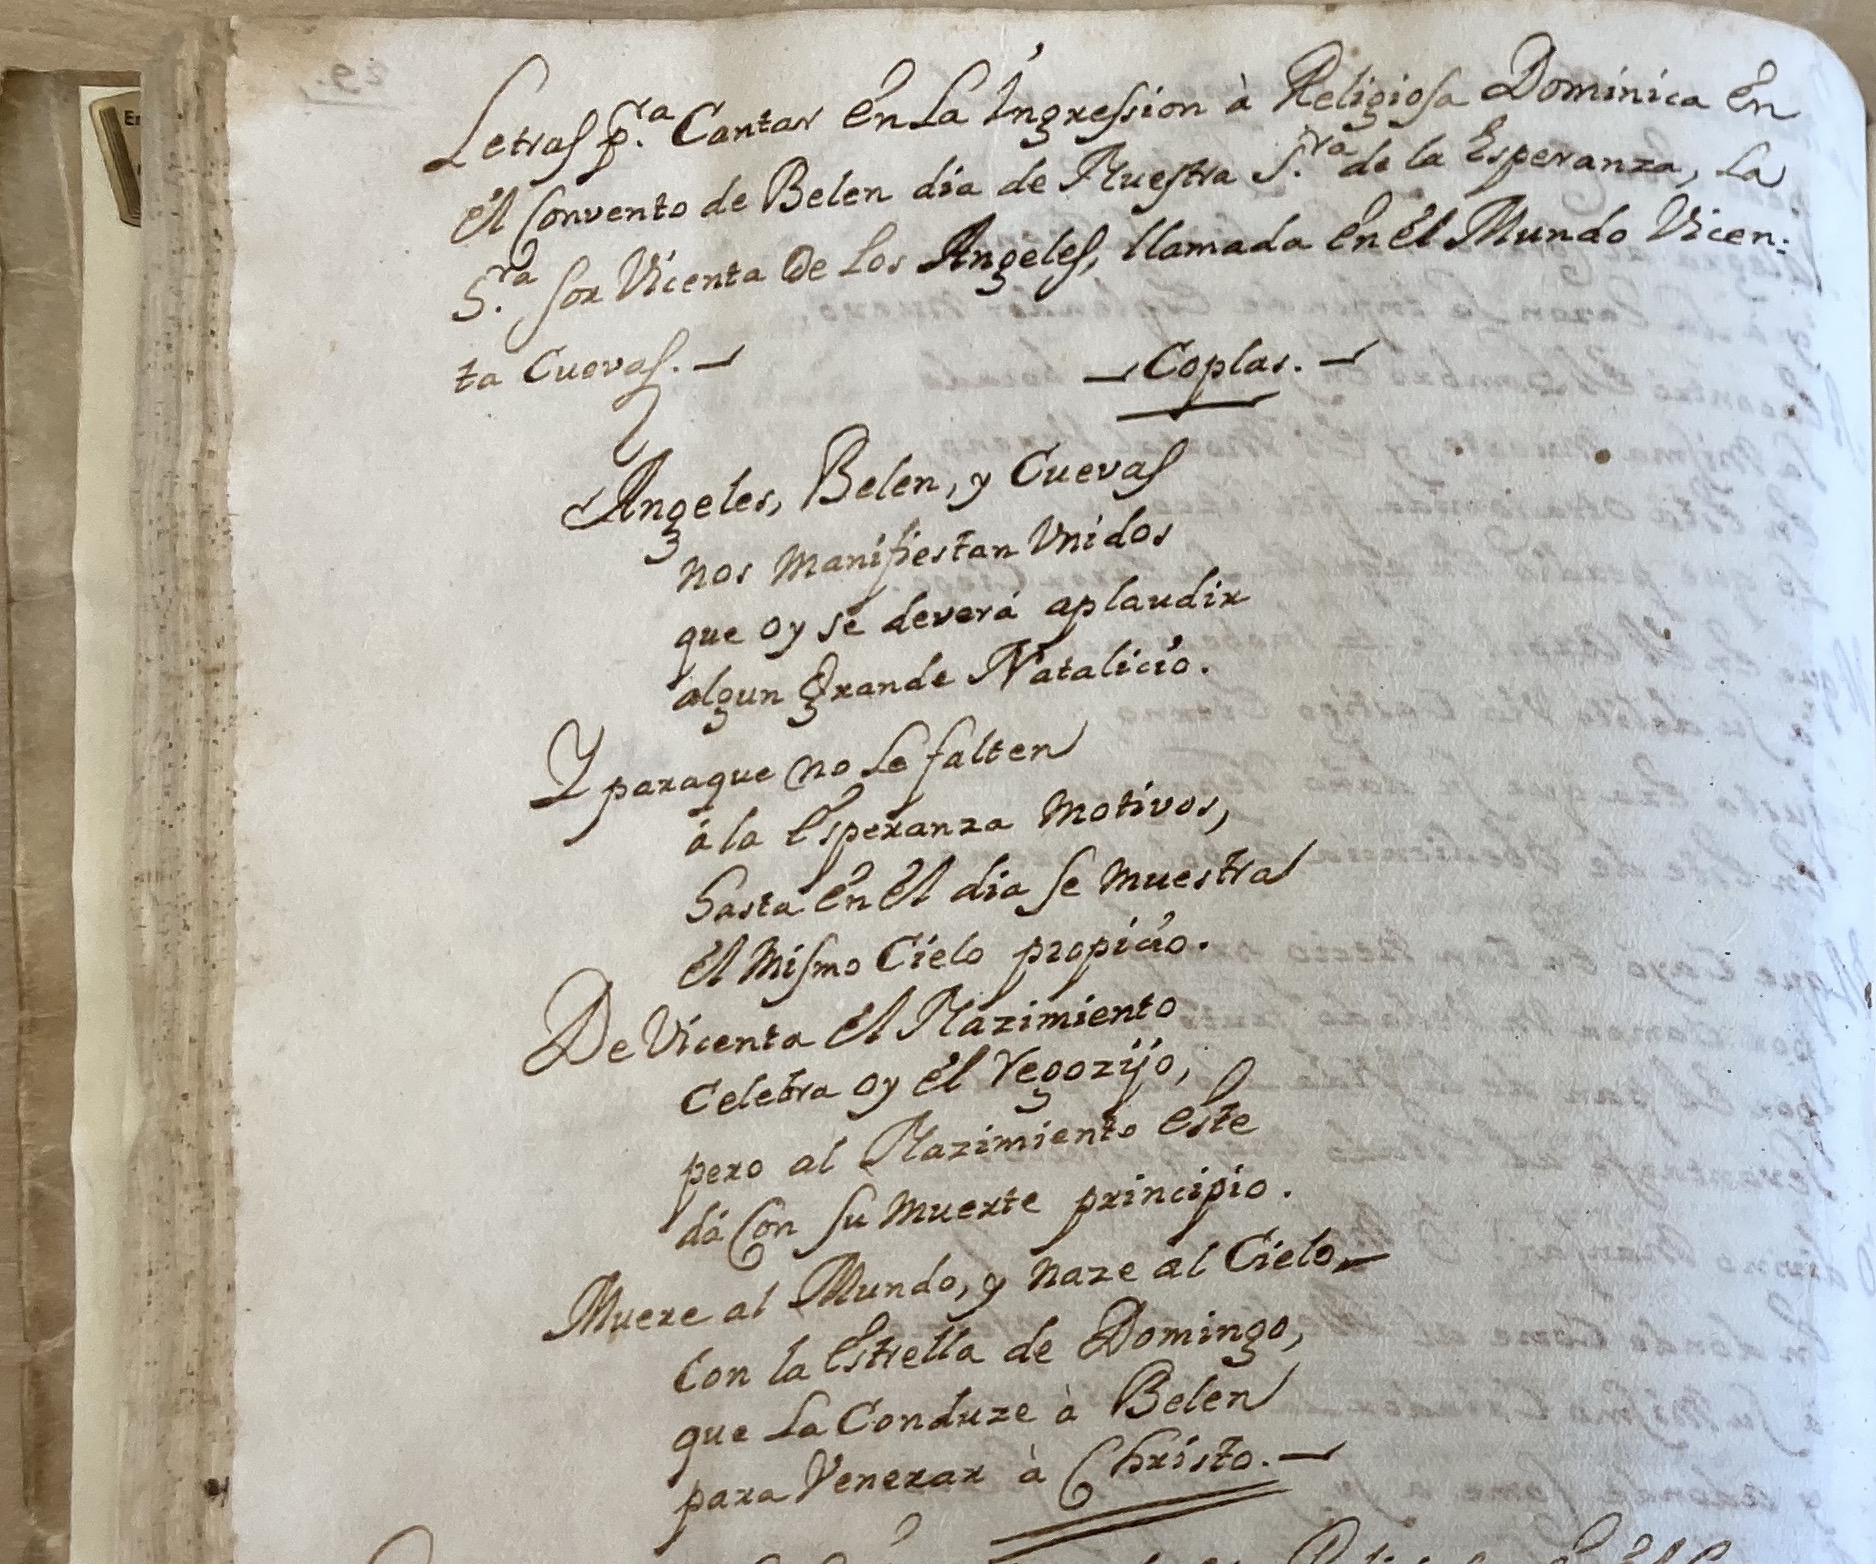 Letras p.ra Cantar én La Ingression à Religiosa Dominica én
él Convento de Belen dia de Nuestra S.ra de la Esperanza, La
S.ra sor Vicenta De Los Angeles, llamada én él Mundo Vicen:
ta Cuevas.—
— Coplas. —
Angeles, Belen, y Cuevas
nos manifiestan Unidos
que oy se deverá aplaudir
algun grande Natalicio.
Y paraque no le falten
á la Esperanza motivos,
hasta én él dia se muestra
él mismo Cielo propicio.
De Vicenta él Nazimiento
Celebra oy él regozijo,
pero al Nazimiento éste
dá Con su muerte principio.
Muere al Mundo, y naze al Cielo,—
Con la Estrella de Domingo,
que La Conduze à Belen
para Venerar à Christo.—